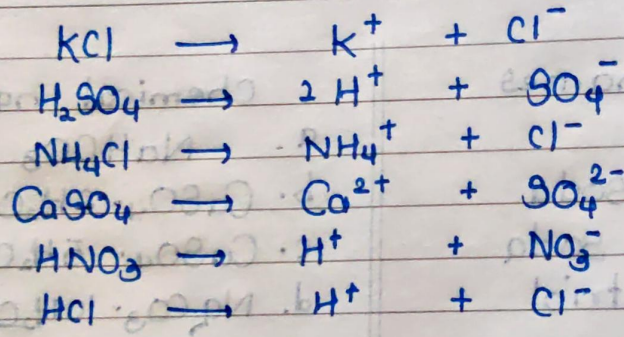 KCl → K⁺ + Cl⁻
H₂SO₄ → 2 H⁺ + SO₄⁻
NH₄Cl → NH₄⁺ + Cl⁻
CaSO₄ → Ca²⁺ + SO₄²⁻
HNO₃ → H⁺ + NO₃⁻
HCl → H⁺ + Cl⁻